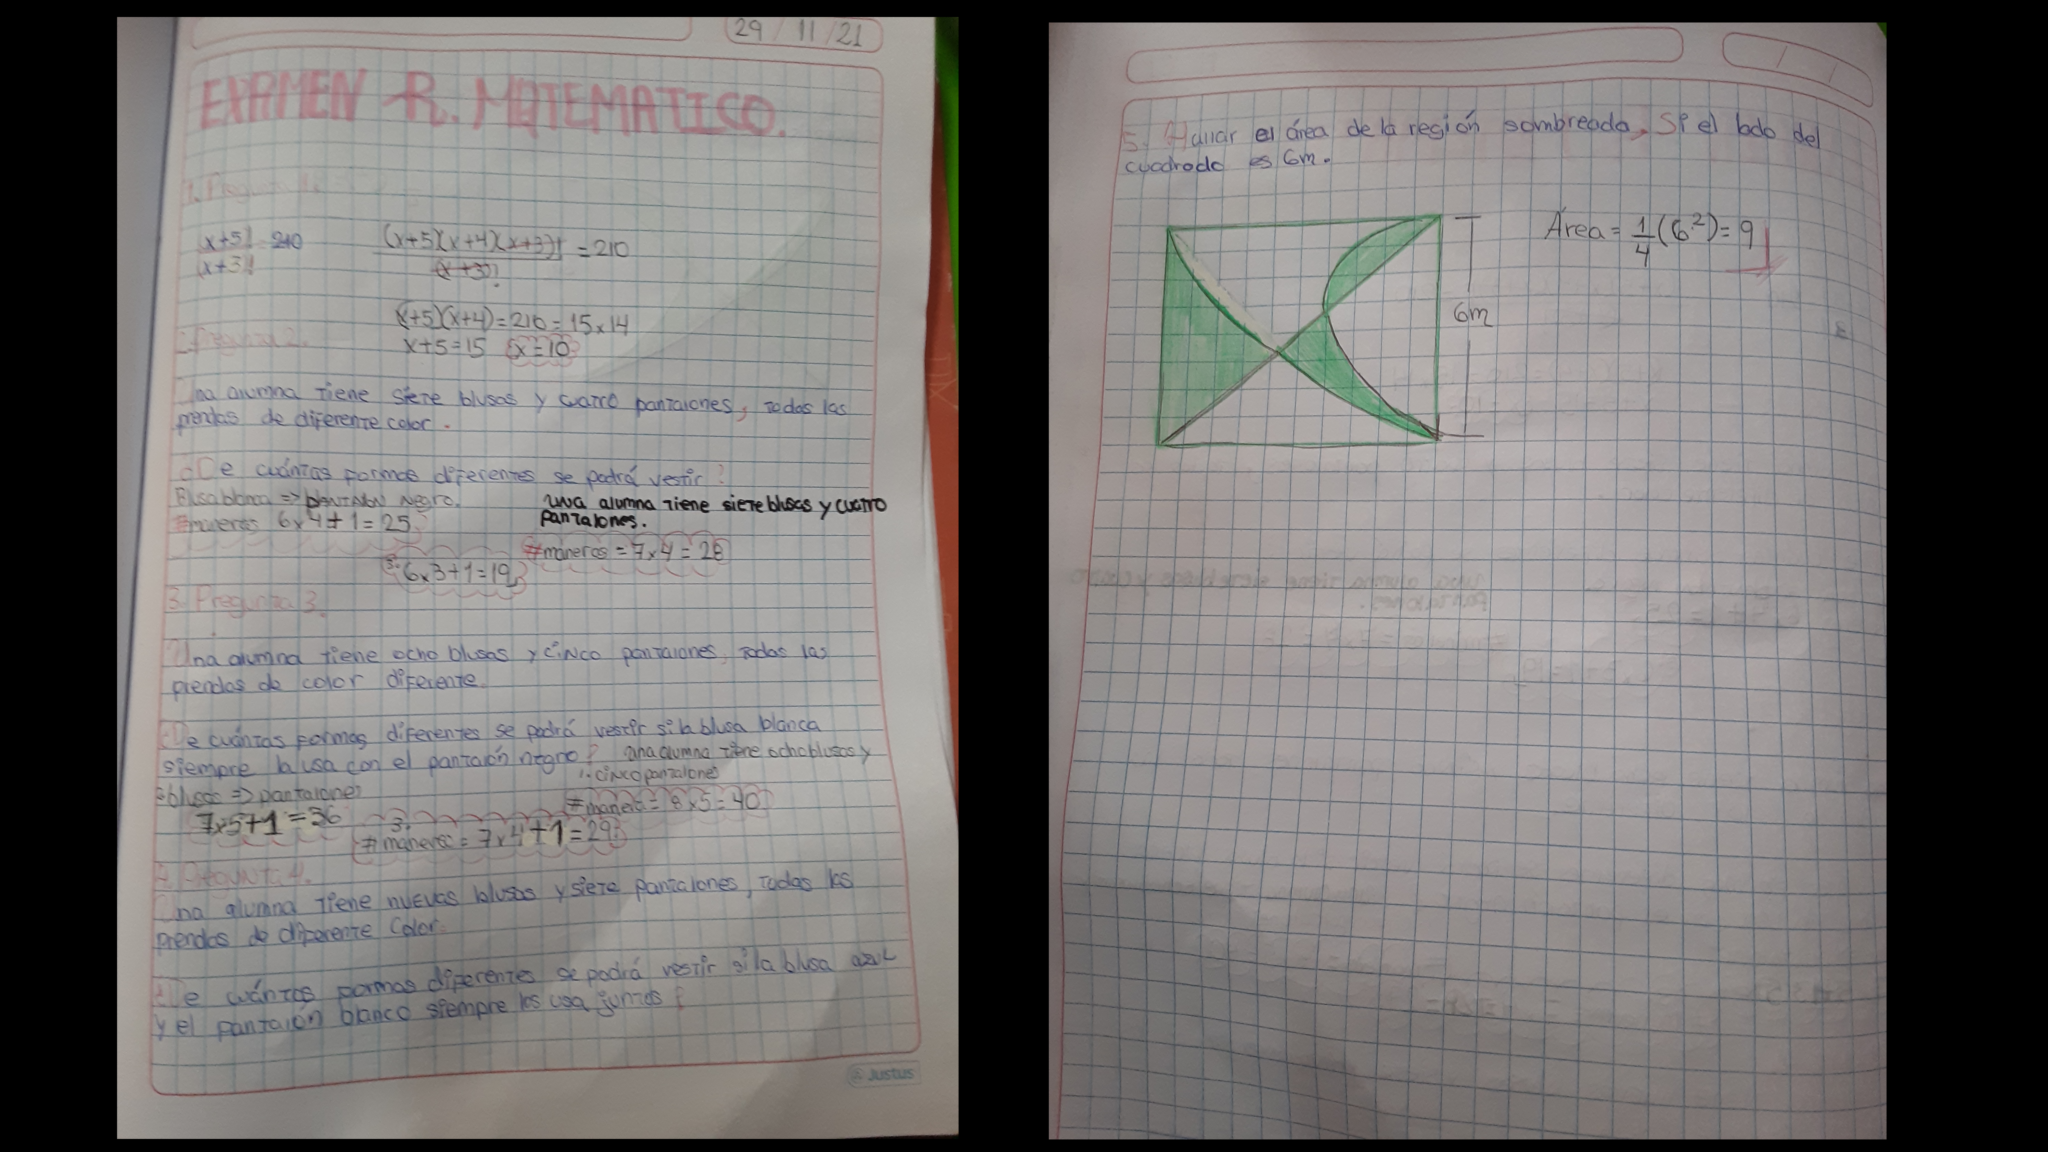 29 / 11 / 21
EXAMEN R. MATEMATICO.
1. Pregunta 1.
(x+5)! = 210
(x+3)!
(x+5)(x+4)(x+3)! = 210
(x+3)!
(x+5)(x+4)=210=15x14
x+5=15 x=10
2. Pregunta 2.
Una alumna tiene siete blusas y cuatro pantalones, todas las
prendas de diferente color.
¿De cuántas formas diferentes se podrá vestir?
Blusa blanca => pantalon negro.
#maneras 6x4+1=25
una alumna tiene siete blusas y cuatro
pantalones.
#maneras = 7x4=28
3. 6x3+1=19
3. Pregunta 3.
Una alumna tiene ocho blusas y cinco pantalones, todas las
prendas de color diferente.
¿De cuántas formas diferentes se podrá vestir si la blusa blanca
siempre la usa con el pantalón negro?
una alumna tiene ocho blusas y
cinco pantalones
blusas => pantalones
7x5+1=36
#maneras = 8x5=40
3.
#maneras = 7x4+1=29
4. Pregunta 4.
Una alumna tiene nuevas blusas y siete pantalones, todas las
prendas de diferente color.
¿De cuántas formas diferentes se podrá vestir si la blusa azul
y el pantalón blanco siempre los usa juntos?
JUSTUS
5. Hallar el área de la región sombreada, Si el lado del
cuadrado es 6m.
Área = 1/4 (6²) = 9
6m